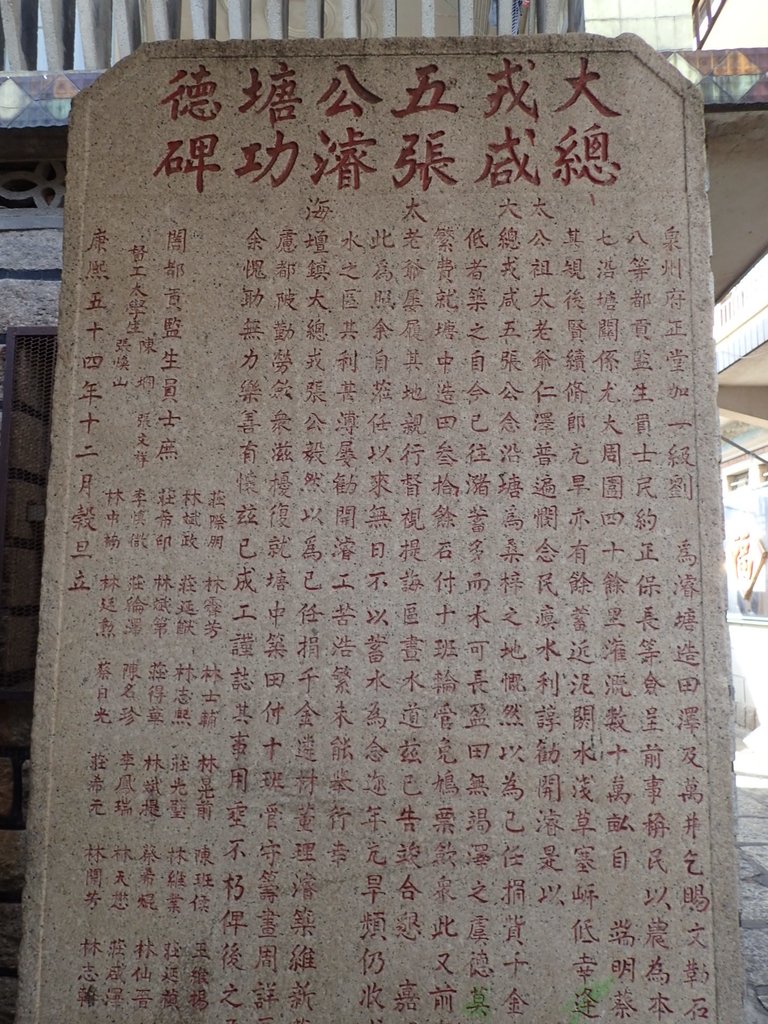 大總戎咸五張公濬塘功德碑
泉州府正堂加一級劉 為濬塘造田澤及萬井乞賜文勒石
八等都貢監生員士民約正保長等僉呈前事稱民以農為本
七浯塘關係尤大周圍四十餘里灌溉數十萬畝自 端明蔡
其規後賢續脩郎亢旱亦有餘蓄近泥關水淺草塞岼低幸逢
太公祖太老爺仁澤普遍憫念民瘼水利諄勸開濬是以
大總戎咸五張公念沿塘為桑梓之地慨然以為己任捐貲千金
低者築之自合已往潴蓄多而水可長盈田無竭澤之虞德莫
繁費就塘中造田叁拾餘石付十班輪管免鳩票斂眾此又前
太老爺屢履其地親行督視提誨區畫水道茲已告竣合懇 嘉
此為照余自蒞任以來無日不以蓄水為念迩年亢旱頻仍收
水之區其利甚溥屢勸開濬工苦浩繁未能舉行幸
海壇鎮大總戎張公毅然以為己任捐千金遴材董理濬築維新
慮都陂勤勞斂眾滋擾復就塘中築田付十班管守籌畫周詳
余愧助無力樂善有懷茲已成工謹誌其事用垂不朽俾後之
闔都貢監生員士庶
莊際朋 林霽芳 林士賴 林晃前 陳班侯 王徽揚
林斌政 莊延猷 林志熙 莊光璧 林維業 莊延蘋
莊希印 林斌第 莊得華 林斌堤 蔡希焜 林仙晉
督工太學生 陳堈 張文祥 張煥山
李慎徽 莊倫澤 陳名珍 李鳳瑞 林天慭 莊咸澤
林中楠 林廷勲 蔡日光 莊希元 林開芳 林志翰
康熙五十四年十二月穀旦立